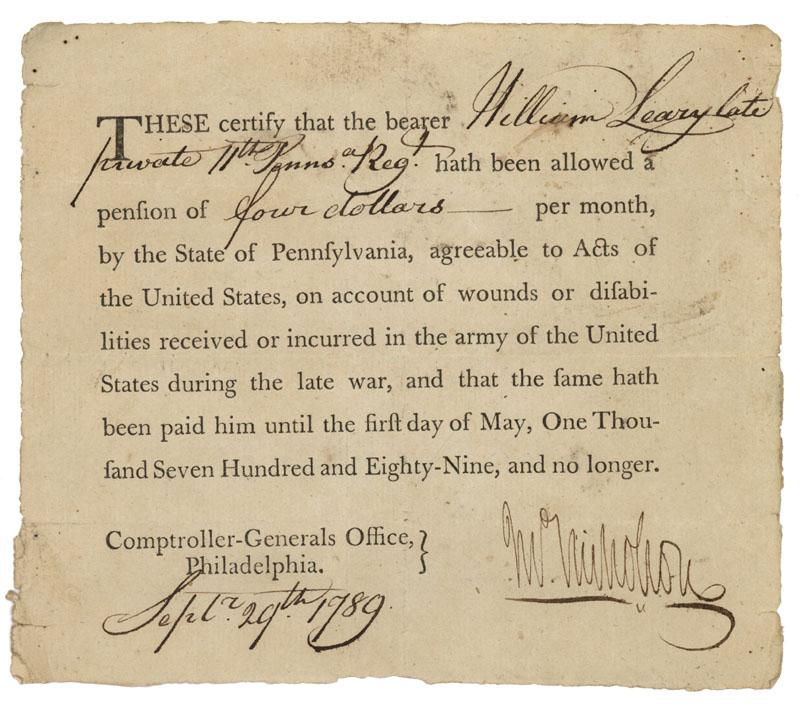 THESE certify that the bearer William Leary late
private 11th. Pennsa. Regt. hath been allowed a
penſion of four dollars — per month,
by the State of Pennſylvania, agreeable to Acts of
the United States, on account of wounds or diſabi-
lities received or incurred in the army of the United
States during the late war, and that the ſame hath
been paid him until the firſt day of May, One Thou-
ſand Seven Hundred and Eighty-Nine, and no longer.
Comptroller-Generals Office, }
Philadelphia.
Jno. Nicholson
Septr. 29th. 1789.